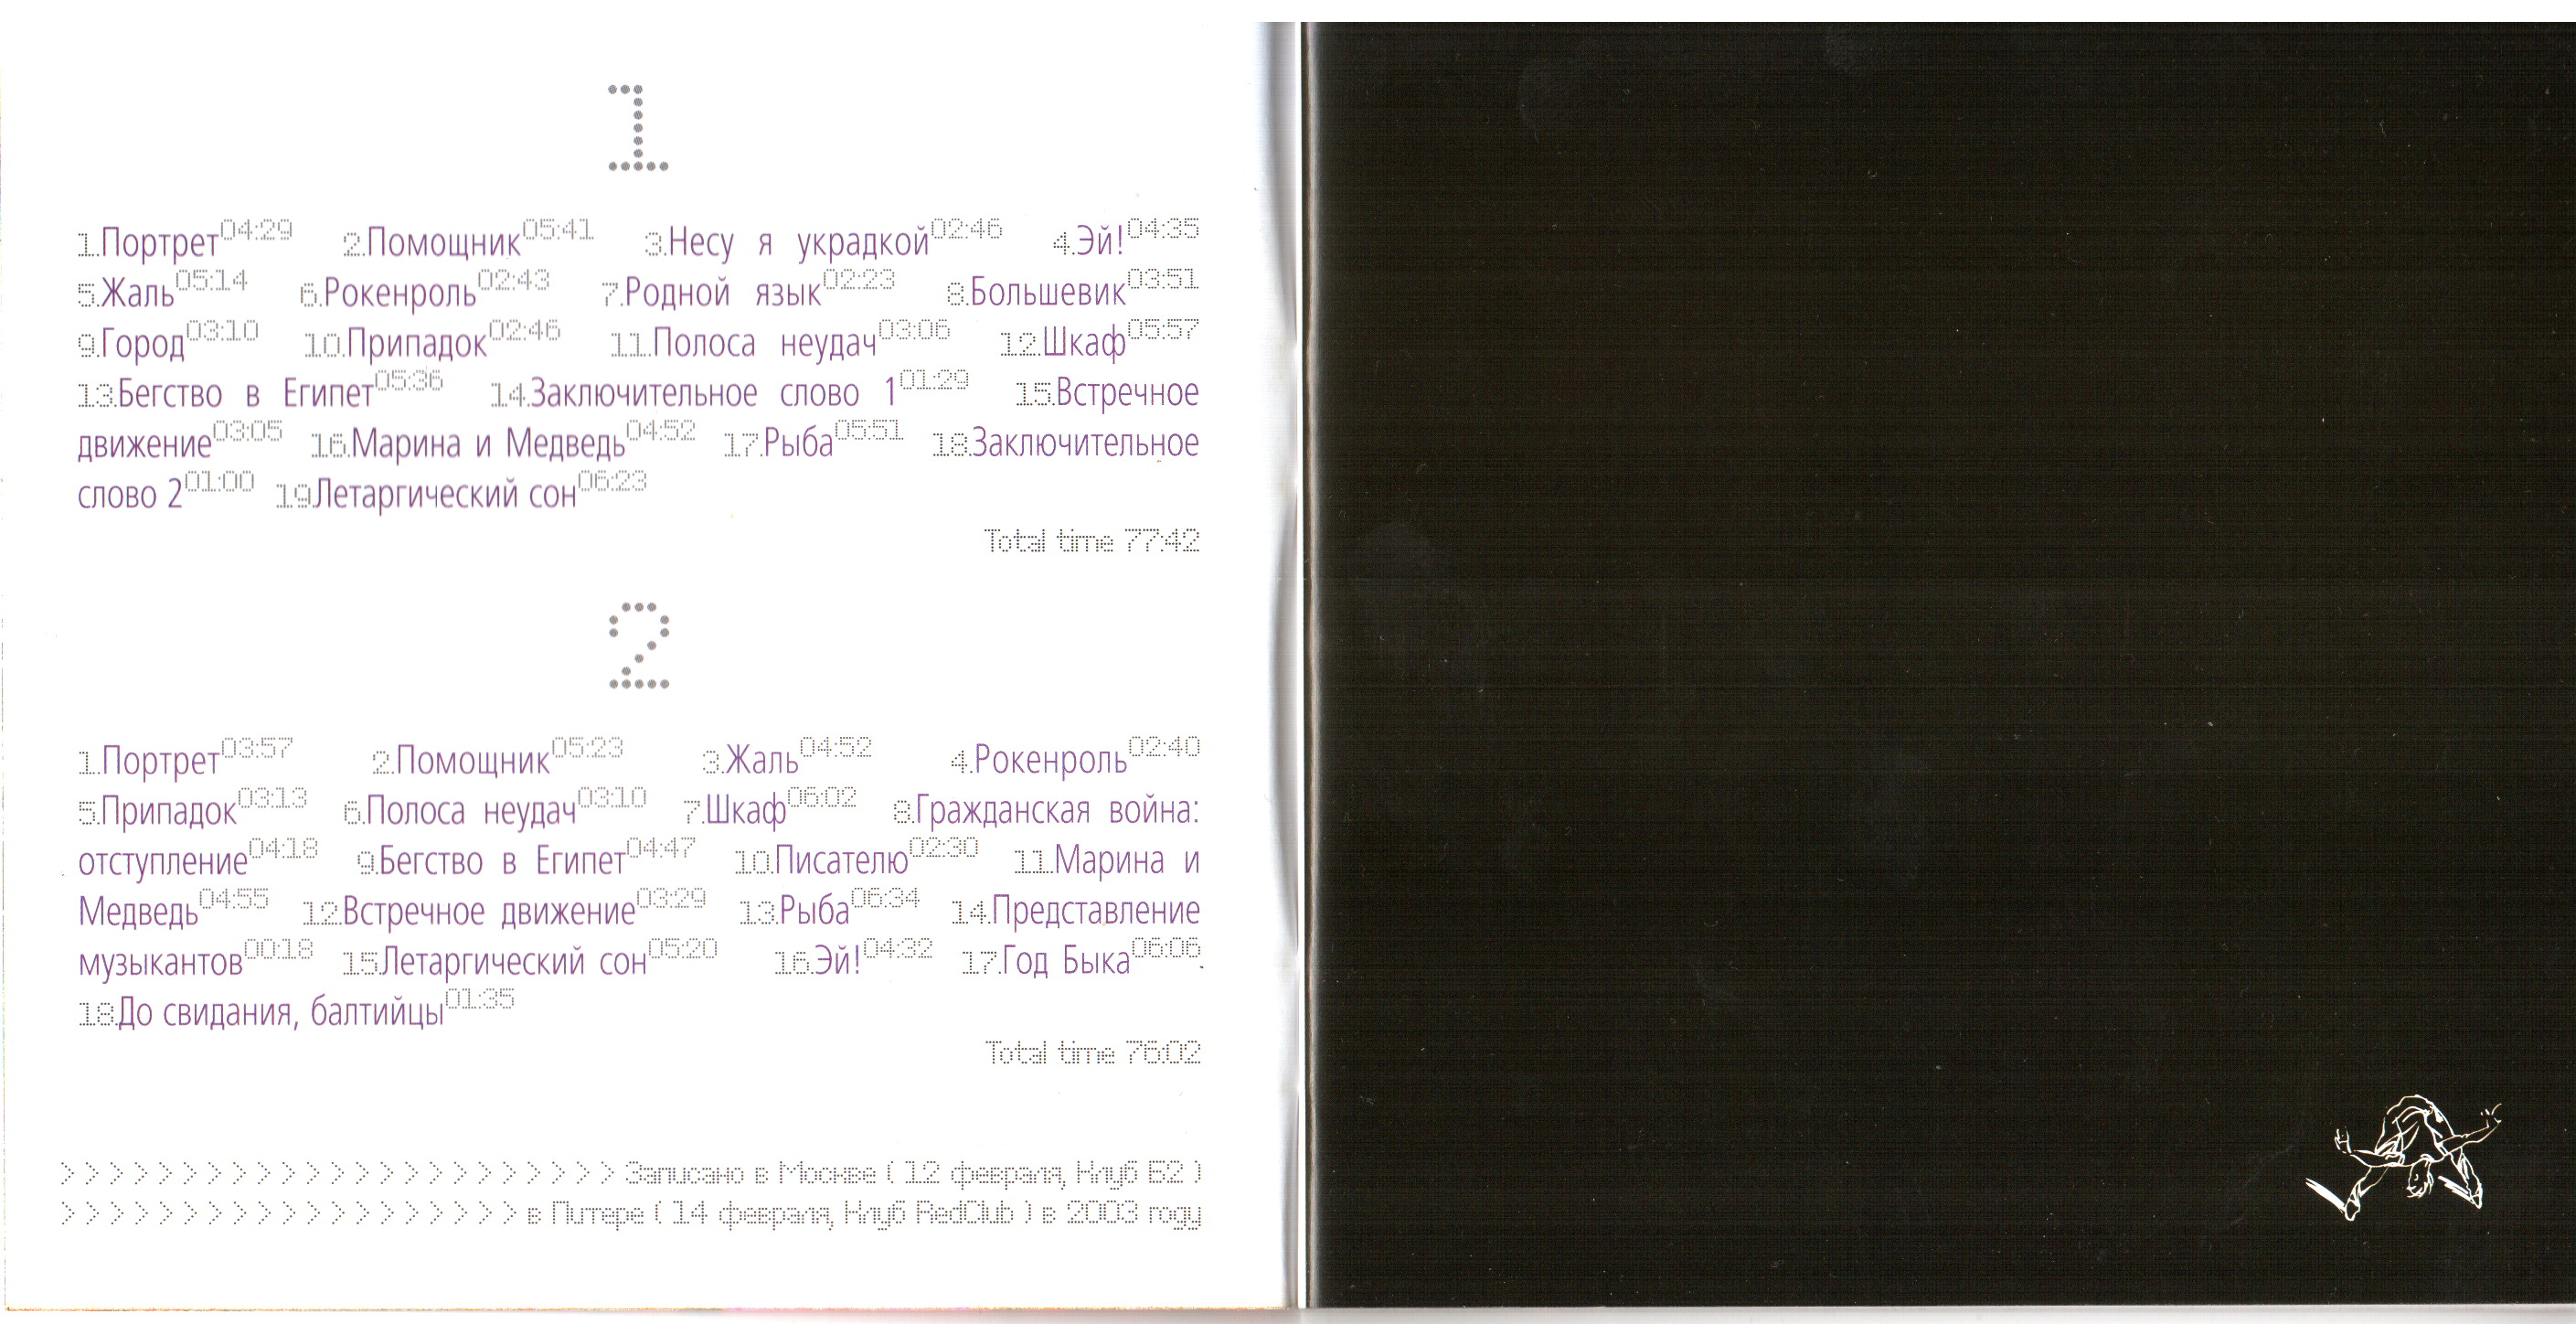 1
1.Портрет04:29 2.Помощник05:41 3.Несу я украдкой02:46 4.Эй!04:35
5.Жаль05:14 6.Рокенроль02:43 7.Родной язык02:23 8.Большевик03:51
9.Город03:10 10.Припадок02:46 11.Полоса неудач03:06 12.Шкаф05:57
13.Бегство в Египет05:36 14.Заключительное слово 101:29 15.Встречное
движение03:05 16.Марина и Медведь04:52 17.Рыба05:51 18.Заключительное
слово 201:00 19.Летаргический сон06:23
Total time 77:42
2
1.Портрет03:57 2.Помощник05:23 3.Жаль04:52 4.Рокенроль02:40
5.Припадок03:13 6.Полоса неудач03:10 7.Шкаф06:02 8.Гражданская война:
отступление04:18 9.Бегство в Египет04:47 10.Писателю02:30 11.Марина и
Медведь04:55 12.Встречное движение03:29 13.Рыба06:34 14.Представление
музыкантов00:18 15.Летаргический сон05:20 16.Эй!04:32 17.Год Быка06:06
18.До свидания, балтийцы01:35
Total time 75:02
> > > > > > > > > > > > > > > > > > > > > > > Записано в Москве ( 12 февраля, Клуб Б2 )
> > > > > > > > > > > > > > > > > > > в Питере ( 14 февраля, Клуб RedClub ) в 2003 году